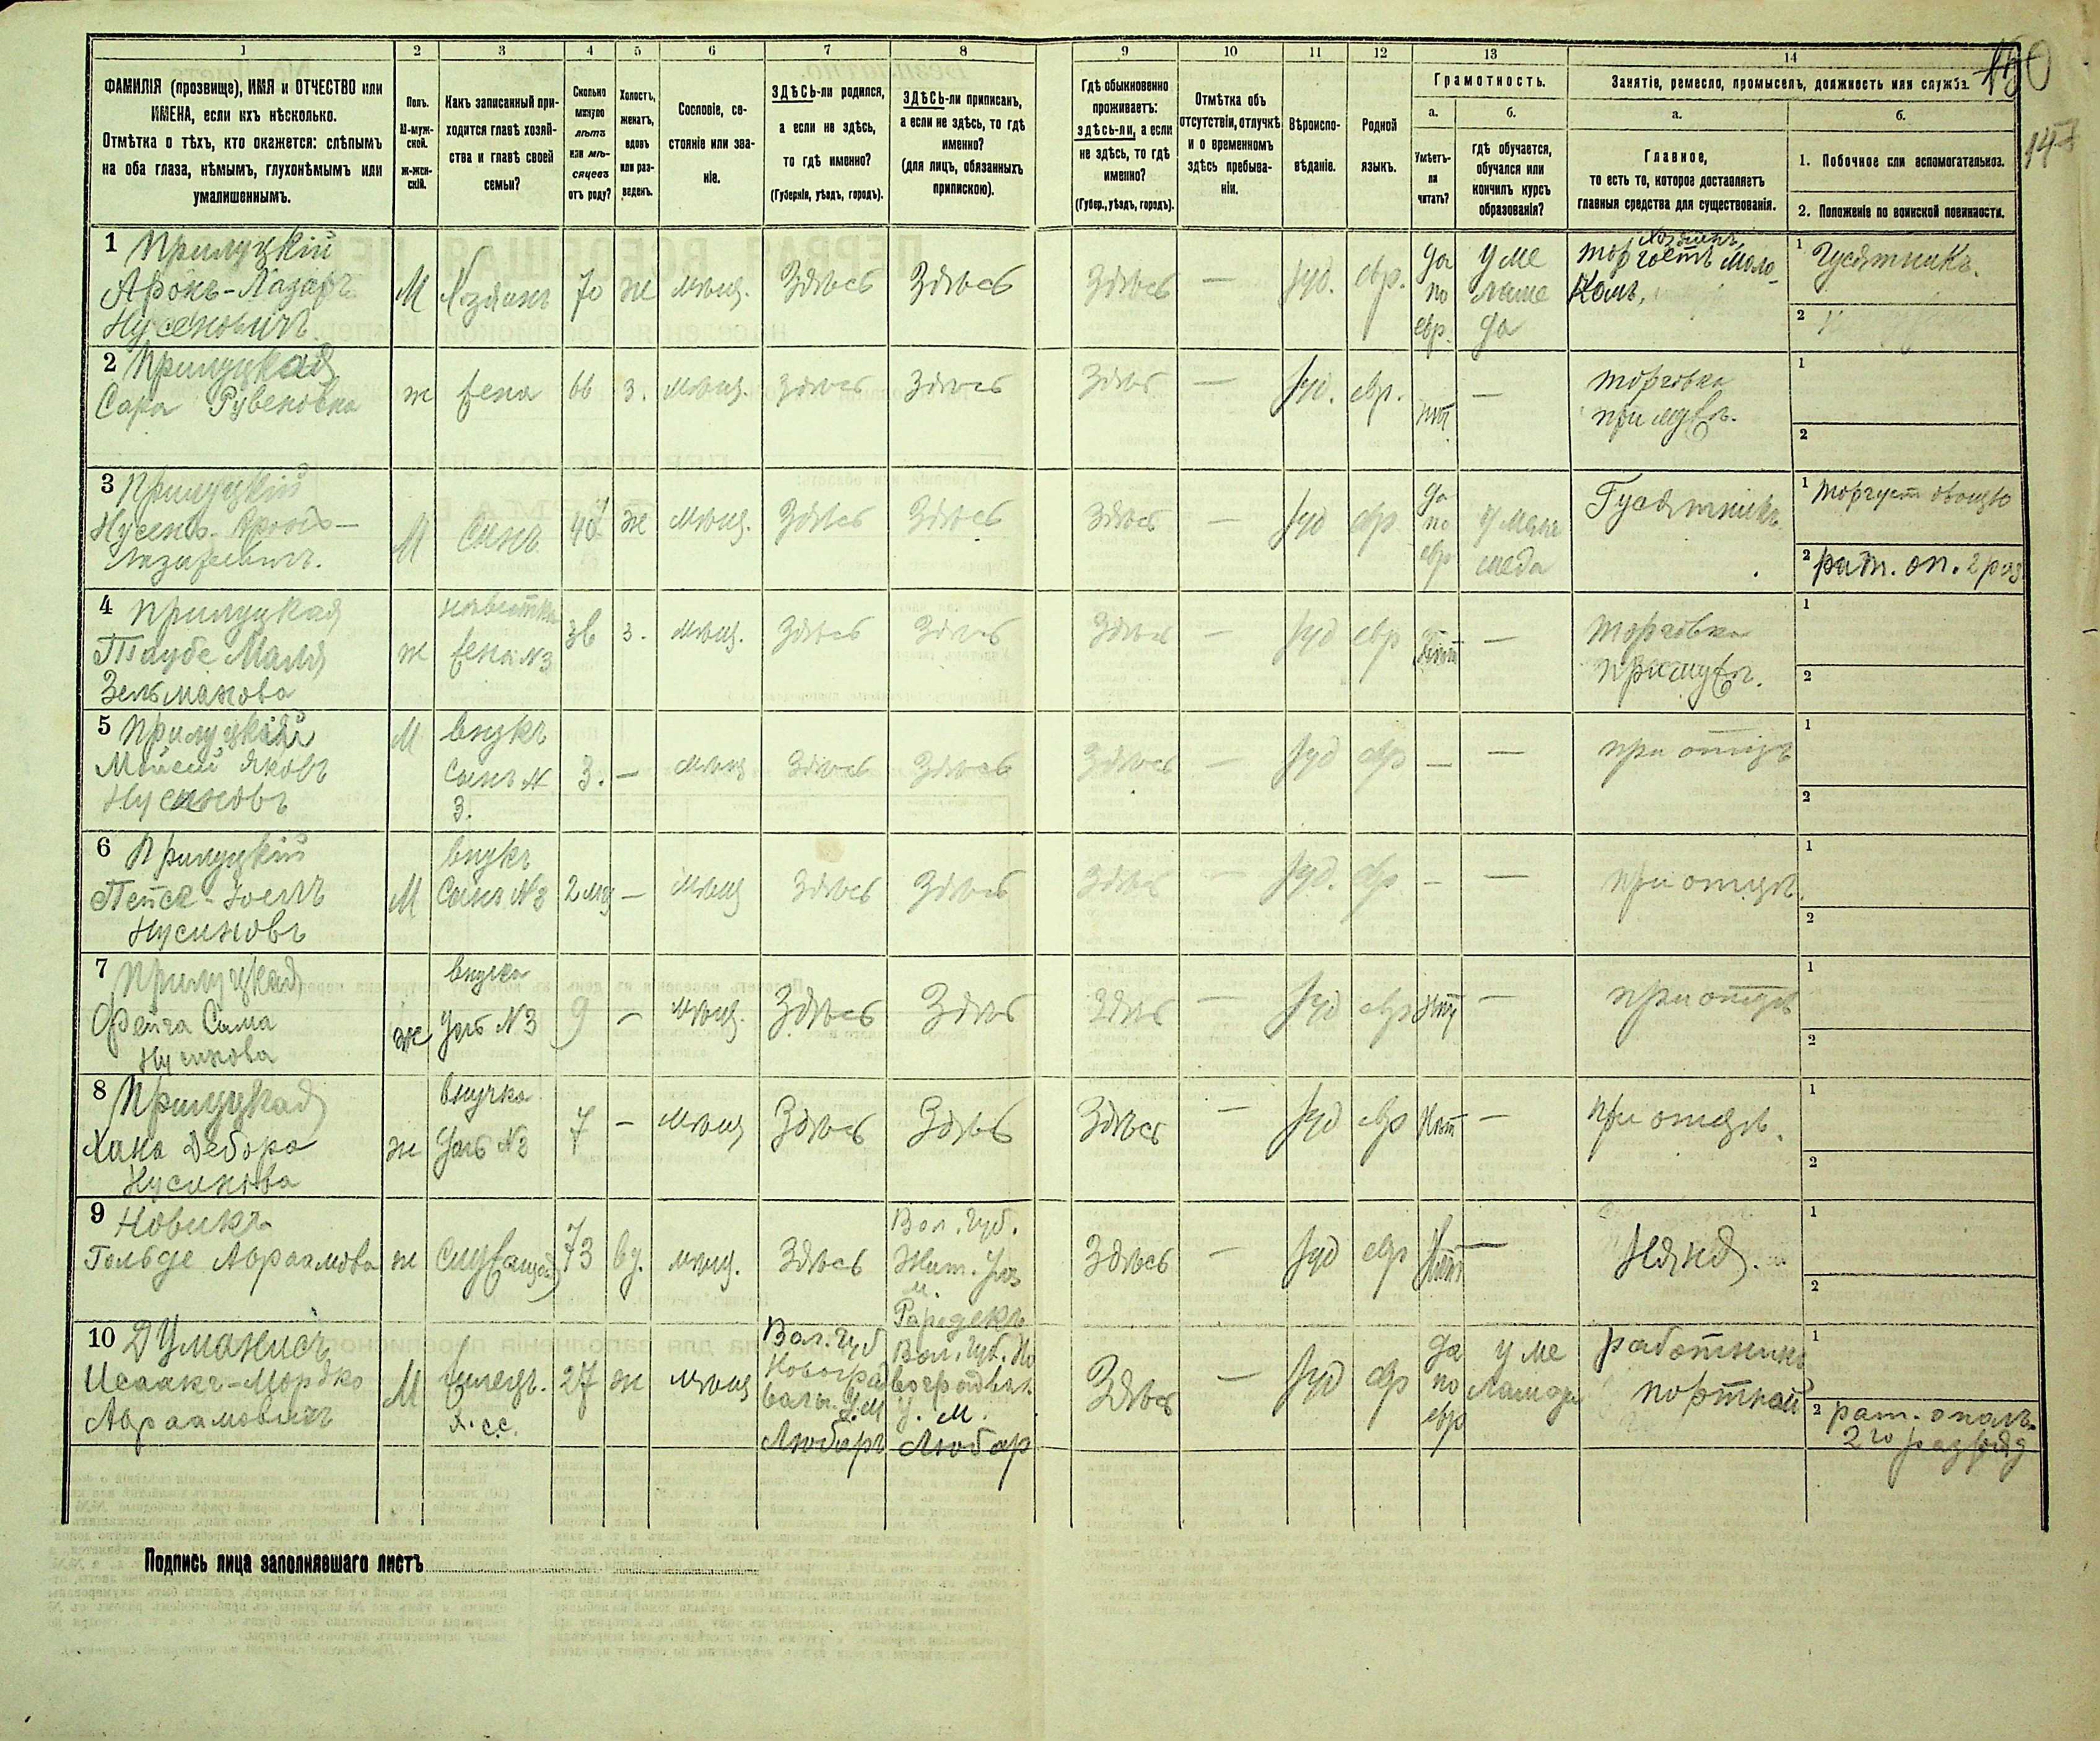 1 2 3 4 5 6 7 8 9 10 11 12 13 14
ФАМИЛІЯ (прозвище), ИМЯ и ОТЧЕСТВО или
ИМЕНА, если ихъ нѣсколько.
Отмѣтка о тѣхъ, кто окажется: слѣпымъ
на оба глаза, нѣмымъ, глухонѣмымъ или
умалишеннымъ.
Полъ.
М-муж-
ской.
Ж-жен-
скій.
Какъ записанный при-
ходится главѣ хозяй-
ства и главѣ своей
семьи?
Сколько
минуло
лѣтъ
или мѣ-
сяцевъ
отъ роду?
Холостъ,
женатъ,
вдовъ
или раз-
веденъ.
Сословіе, со-
стояніе или зва-
ніе.
ЗДѢСЬ-ли родился,
а если не здѣсь,
то гдѣ именно?
(Губернія, уѣздъ, городъ).
ЗДѢСЬ-ли приписанъ,
а если не здѣсь, то гдѣ
именно?
(для лицъ, обязанныхъ
припискою).
Гдѣ обыкновенно
проживаетъ:
здѣсь-ли, а если
не здѣсь, то гдѣ
именно?
(Губер., уѣздъ, городъ).
Отмѣтка объ
отсутствіи, отлучкѣ
и о временномъ
здѣсь пребыва-
ніи.
Вѣроиспо-
вѣданіе.
Родной
языкъ.
Грамотность.
а.
Умѣетъ-
ли
читать?
б.
гдѣ обучается,
обучался или
кончилъ курсъ
образованія?
Занятіе, ремесло, промыселъ, должность или служба.
а.
Главное,
то есть то, которое доставляетъ
главныя средства для существованія.
б.
1. Побочное или вспомогательное.
2. Положеніе по воинской повинности.
150
147
1 Прилуцкій
Аронъ-Лазарь
Нусеновичъ
М Хозяинъ 70 ж мѣщ. Здѣсь Здѣсь Здѣсь — Іуд. евр.
Да
по
евр.
у ме
ламе
да
Хозяинъ
торгоетъ моло-
комъ,
1 Гусятникъ.
2
2 Прилуцкая
Сара Рувеновна
ж жена 66 з. мѣщ. Здѣсь Здѣсь Здѣсь — Іуд. евр. нѣт —
торговка
при мужѣ.
1
2
3 Прилуцкій
Нусенъ Аронъ-
Лазаревичъ.
М Сынъ 40 ж мѣщ. Здѣсь Здѣсь Здѣсь — Іуд евр
да
по
евр
Гусятникъ
1 торгует овощью
2 рат. оп. 2 раз
4 Прилуцкая
Таубе Маля
Зельманова
ж
невѣстка
жена №3
36 з. мѣщ. Здѣсь Здѣсь Здѣсь — Іуд евр Нѣт —
торговка
при мужѣ.
1
2
5 Прилуцкій
Мойсей Яковъ
Нусиновъ
М
внукъ
сынъ №
3.
3. — мѣщ Здѣсь Здѣсь Здѣсь — Іуд евр — —
при отцѣ
1
2
6 Прилуцкій
Нусиновъ
М
внукъ
Сынъ №3
2 мц — мѣщ Здѣсь Здѣсь Здѣсь — Іуд. евр — —
при отцѣ.
1
2
7 Прилуцкая
Фейга Сима
Нусинова
ж
внучка
Дочь №3
9 — мѣщ. Здѣсь Здѣсь Здѣсь — Іуд евр нѣт —
при отцѣ
1
2
8 Прилуцкая
Хана Дебора
Нусинова
ж
внучка
Дочь №3
7 — мѣщ Здѣсь Здѣсь Здѣсь — Іуд евр Нѣт —
при отцѣ.
1
2
9 Новикъ
Гольде Авраамова
ж Служащая 73 вд. мѣщ. Здѣсь
Вол. Губ.
Жит. Уез
м.
Здѣсь — Іуд евр Нѣт —
Няня.
1
2
10 Думанисъ
Исаакъ-Мордко
Авраамовичъ
М
жилецъ.
х. сс.
27 ж мѣщ
Вол. Губ
Новоград
волын. У. М
Любаръ
Вол. Губ. Но
воградвол
У. М.
Любар
Здѣсь — Іуд евр
да
по
евр
у ме
ламеда
работникъ
портной
1
2 рат. ополч.
2го разряд
Подпись лица заполнявшаго листъ